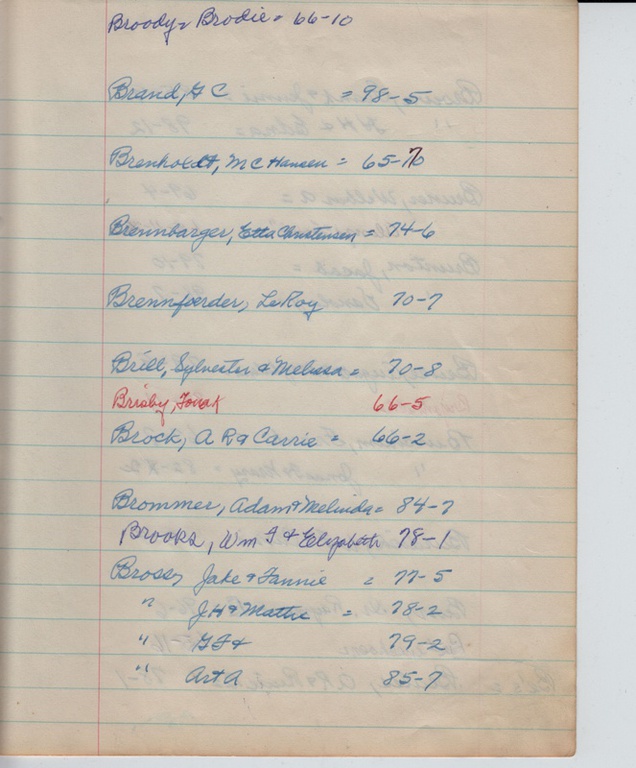 Broody = Brodie = 66-10
Brand, G C = 98-5
Brenholdt, M C Hansen = 65-70
Brennbarger, Etta Christensen = 74-6
Brennfoerder, LeRoy 70-7
Brill, Sylvester & Melissa = 70-8
Brisby, 66-5
Brock, A R & Carrie = 66-2
Brommer, Adam & Melinda = 84-7
Brooks, Wm & Elizabeth 78-1
Bross, Jake & Fannie = 77-5
" J H & Mattie = 78-2
" & 79-2
" Art A 85-7